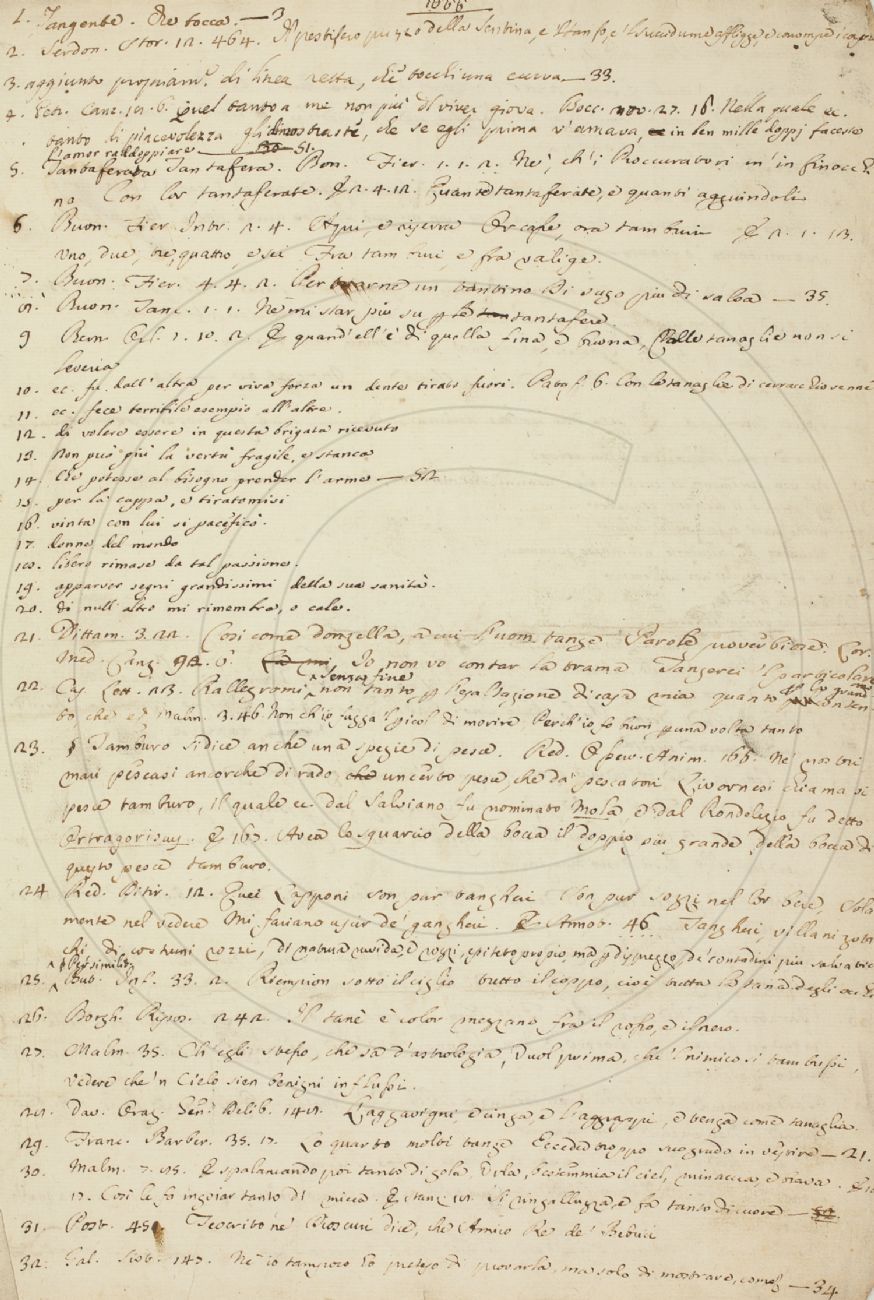 1. Tangente. Che tocca. — 3
2. Serdon. Stor. 12. 464. Il pestifero puzzo della sentina, e
3. aggiunto propriam. di linea retta, che tocchi una curva — 33.
4. Petr. Canz. Quel tanto a me non più di viver giova. Bocc. nov. 27. 18. Nella quale ec.
tanto di piacevolezza gli dimostraste, che se egli prima v'amava, in ben mille doppj faceste
l'amor raddoppiare — 51.
5. Tantaferata Tantafera. Buon. Fier. 1. 1. 2. Nè, ch'i Proccuratori m' in finocchi
no Con lor tantaferate. E 2. 4. 12. Quante tantaferate, e quanti agguindoli
6. Buon. Fier. Intr. 2. 4. Or casse, ora tamburi E 2. 1. 13.
Uno, due, tre, quattro, e sei Fra tamburi, e fra valige.
7. Buon. Fier. 4. 4. 2. Per trarne un tantino di sugo più di salsa — 35.
8. Buon. Tanc. 1. 1. Nè mi star più su tantafere.
9 Bern. Orl. 1. 10. 2. E quand'ell'è di quella fina, e buona, Colle tanaglie non si
leveria
10. ec. fu dall'altra per viva forza un dente tirato fuori. Pataf. 6. Con le tanaglie di
11. ec. fece terribile esempio all'altre.
12. di volere essere in questa brigata ricevuto
13. Non può più la vertù fragile, e stanca
14. Che potesse al bisogno prender l'arme — 52
15. per la cappa, e tiratomisi
16. vinta con lui si pacificò.
17. donne del mondo
18. libero rimase da tal passione.
19. apparver segni grandissimi della sua sanità.
20. di null'altro mi rimembra, o cale.
21. Dittam. 3. 22. Così come donzella, a cui l'uom tange Parole Lor.
Med. Canz. 92. 6. Io non vo contar la trama Tangerei 'l particolare
22. Car. Lett. 2. 13. Rallegromi senza fine non tanto di casa mia quanto
to che Malm. 3. 46 Non ch'io fugga 'l pericol di morire Perch'io fo buon, per una volta tanto
23. Tamburo si dice anche una spezie di pesce. Red. Osserv. Anim. 166. Ne' nostri
mari pescasi ancorchè di rado un certo pesce, che da' pescatori Livornesi chiamasi
pesce tamburo, il quale ec. dal Salviano fu nominato Mola, e dal Rondelezio fu detto
E 167. Avea lo squarcio della bocca il doppio più grande della bocca di
questo pesce tamburo.
24 Red. Ditir. 12. Quei Lapponi son pur tangheri Son pur sozzi nel lor bere Sola
mente nel vedere Mi fariano uscir de' gangheri. E Annot. 46 Tangheri, villani zoti
chi, di costumi rozzi, di natura ruvida, e rozzi, epiteto proprio, ma per dispregio, de' contadini più salvatici
25. Per similit. But. Inf. 33. 2. Riempion sotto il ciglio tutto il coppo, cioè tutta la tana degli occhi
26. Borgh. Ripos. 242. Il tanè è color mezzano fra il rosso, e il nero.
27. Malm. 35. Ch'egli stesso, che sa d'astrologia, Vuol prima, che 'l nimico si tambussi,
Vedere che'n Cielo sien benigni influssi.
28. Dav. Oraz. Gen. Delib. 149. L'aggavigni, e cinga, e l'aggrappi, e tenga come tanaglia.
29. Franc. Barber. 35. 17. Lo quarto molti tange Eccede troppo suo grado in vestire — 21.
30. Malm. 7. 98. E spalancando poi tanto di gola, Urla, bestemmia il ciel, minaccia, e brava.
17. Così le fo ingoiar tanto di micca. Si ringalluzza, e fa tanto di cuore
31. Post. 451 Teocrito ne' Dioscuri dice, che Amico Re de' Bebrici
32. Gal. Sist. 147. Nè io tampoco ho preteso di provarla, ma solo di mostrare, come — 34